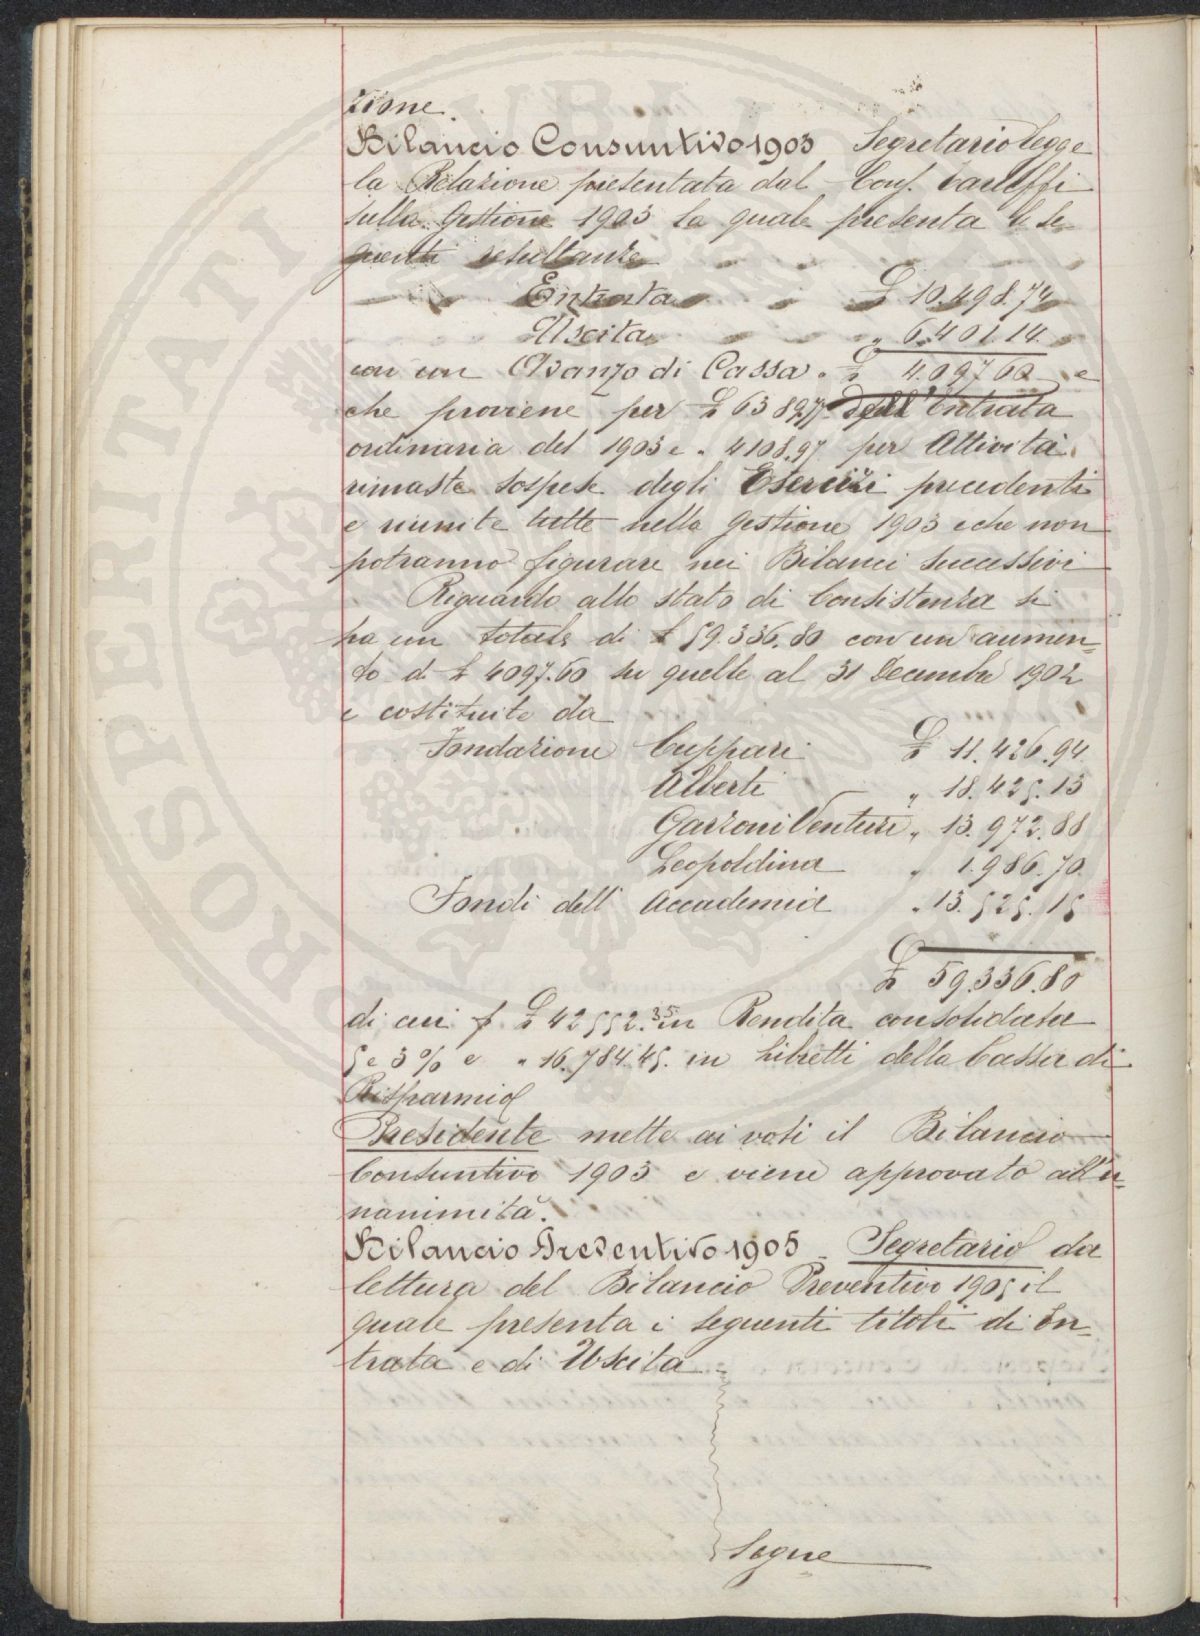 zione.
Bilancio Consuntivo 1903 Segretario legge
la Relazione presentata dal Cons. Careffi
sulla Gestione 1903 la quale presenta le se-
guenti resultanze
Entrata £ 10.498.74
Uscita " 6.401.14.
con un Avanzo di Cassa " £ 4.097.60 e
che proviene per £ 6389.77 dall'Entrata
ordinaria del 1903 e " 4108.97 per Attività
rimaste sospese degli Esercizi precedenti
e riunite tutte nella gestione 1903 e che non
potranno figurare nei Bilanci successivi
Riguardo allo stato di Consistenza si
ha un totale di £ 59.336.80 con un aumen-
to di £ 4097.60 su quelle al 31 Decembre 1902
e costituite da
Fondazione Cuppari £ 11.426.94
Alberti " 18.425.13
Garzoni Venturi " 13.972.88
Leopoldina " 1.986.70
Fondi dell'Accademia " 13.525.15
£ 59.336.80
di cui £ 42552.35 in Rendita consolidata
5 e 3% e " 16.784.45. in libretti della Cassa di
Risparmio
Presidente mette ai voti il Bilancio
Consuntivo 1903 e viene approvato all'u-
nanimità.
Bilancio Preventivo 1905 - Segretario da
lettura del Bilancio Preventivo 1905 il
quale presenta i seguenti titoli di En-
trata e di Uscita
Segue
PROSPERITATI PVBLICAE